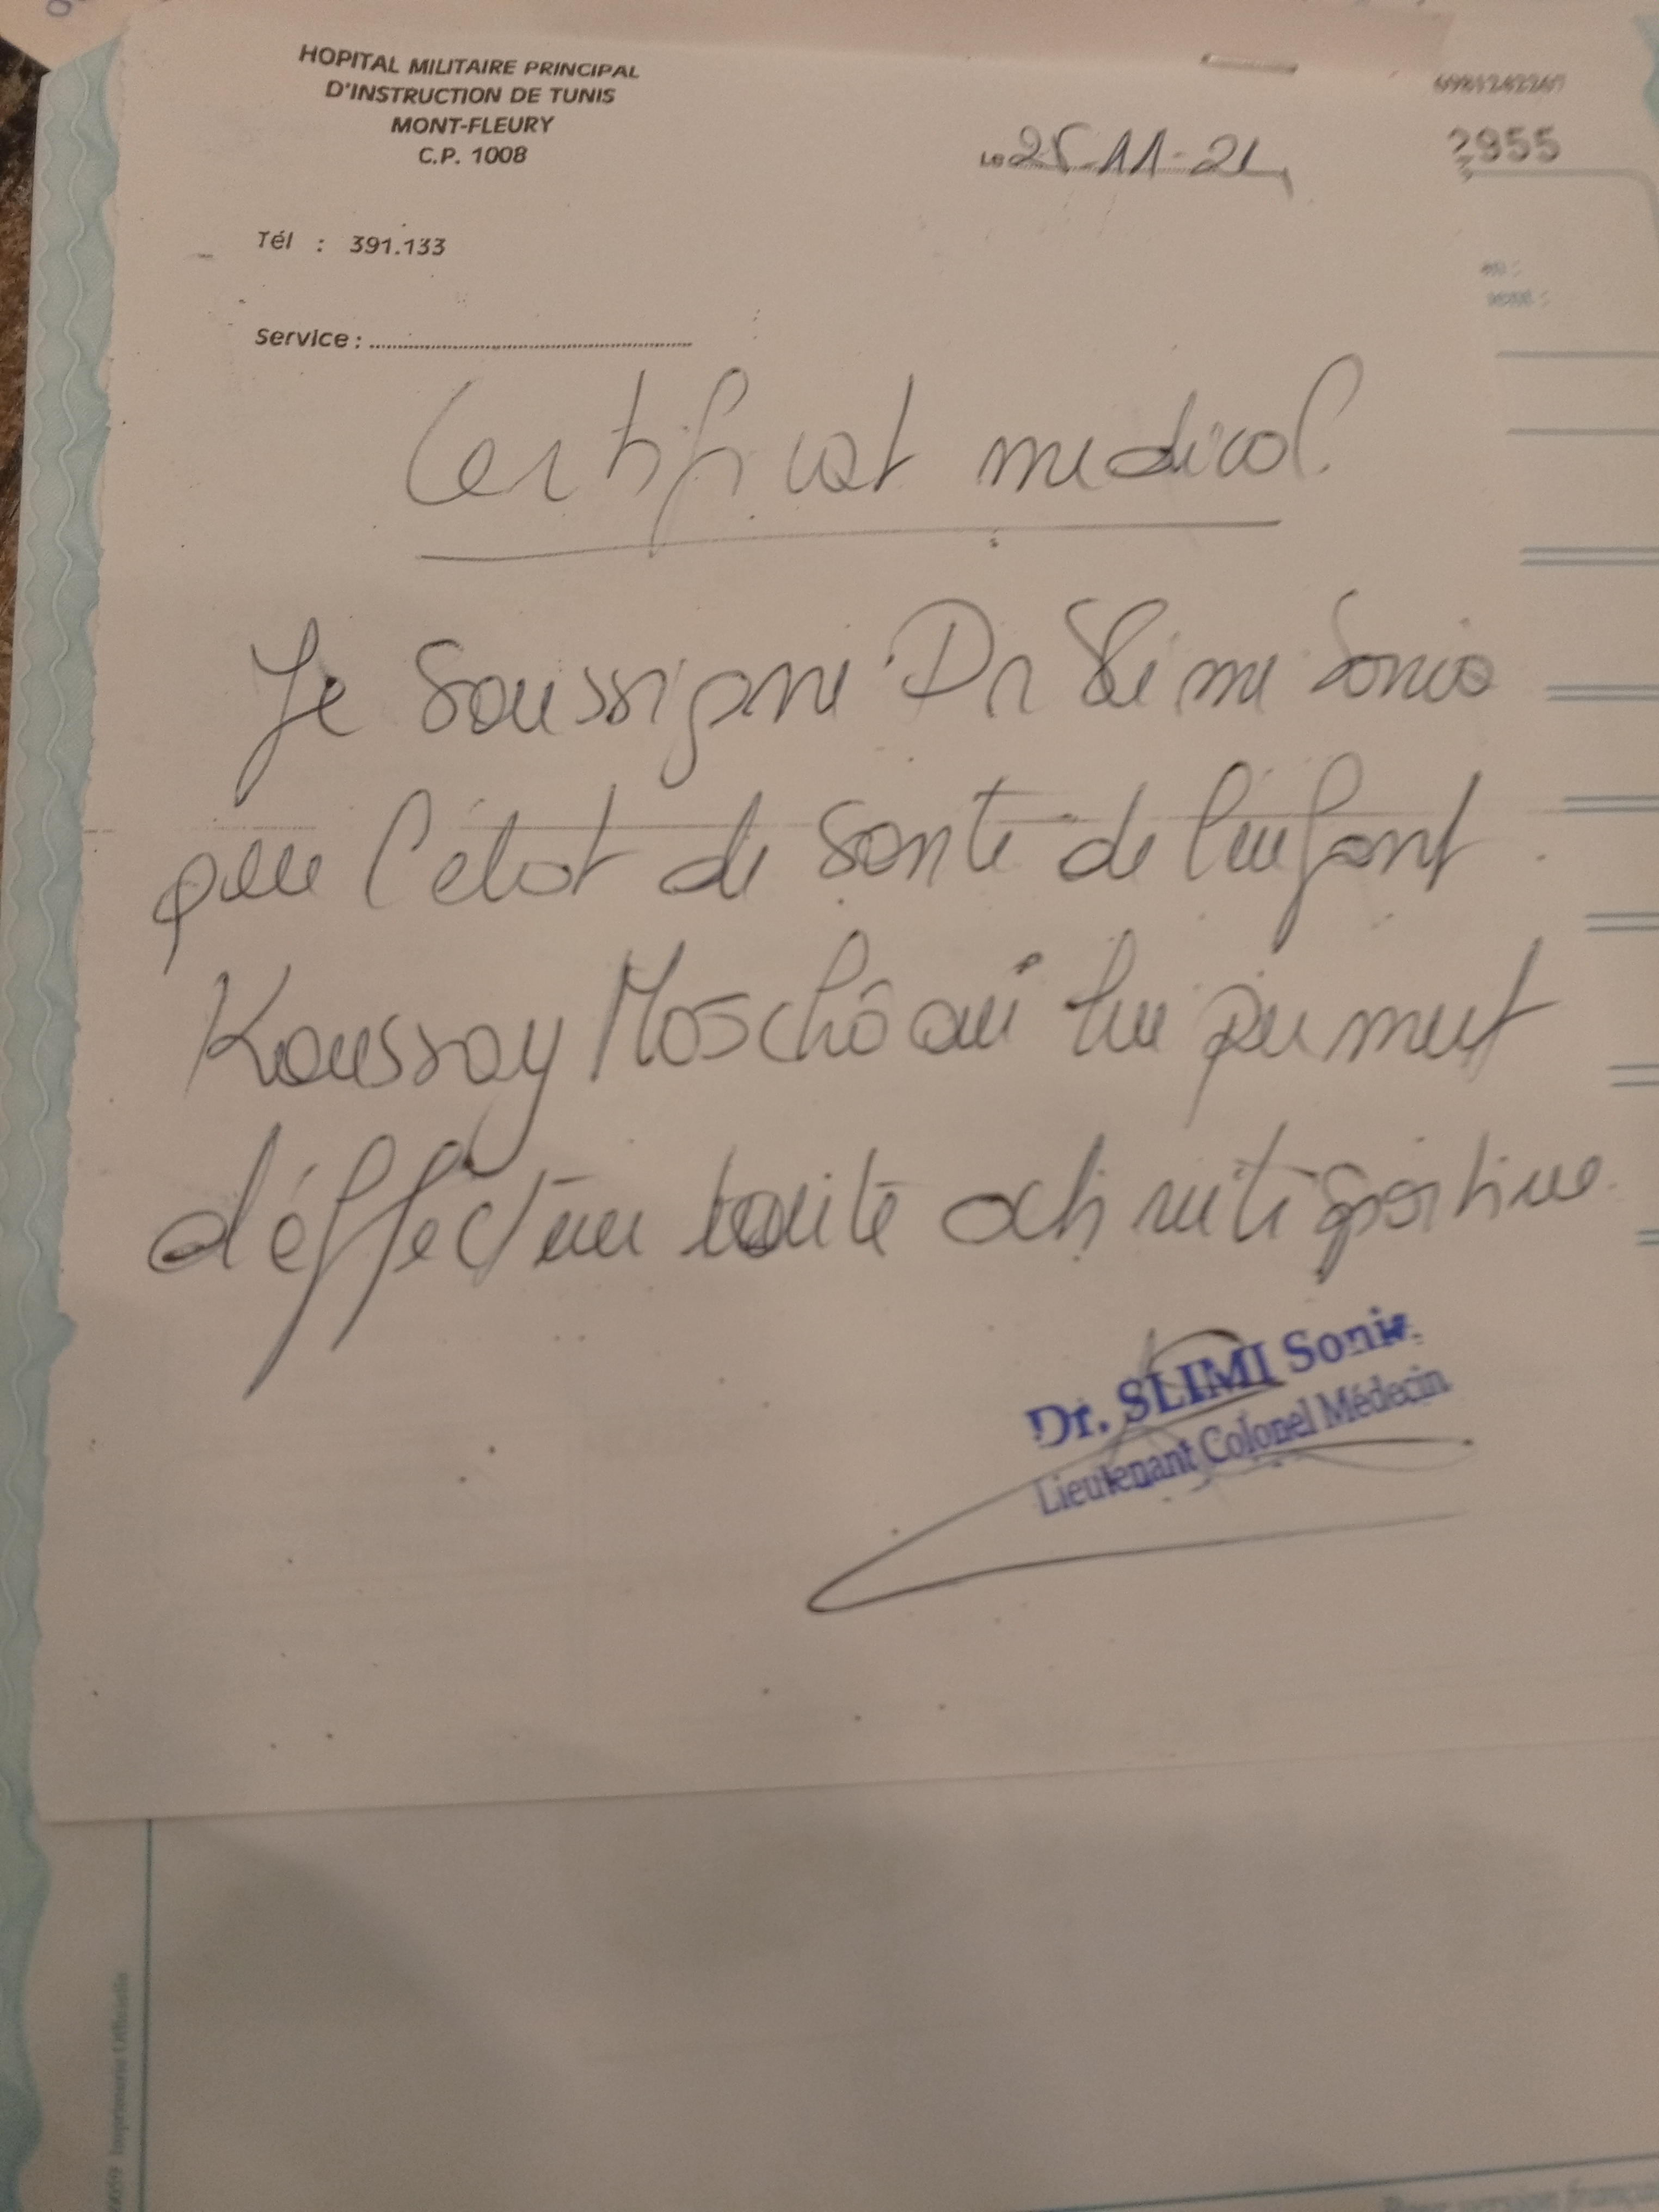 HOPITAL MILITAIRE PRINCIPAL
D'INSTRUCTION DE TUNIS
MONT-FLEURY
C.P. 1008
Le 25-11-24
2955
Tél : 391.133
Service :
Certificat medical
Je Soussigné Dr Slimi Sonia
que l'état de santé de l'enfant
Koussay lui permet
d'éffectuer toute activité sportive
Dr. SLIMI Sonia
Lieutenant Colonel Médecin
Imprimerie Officielle